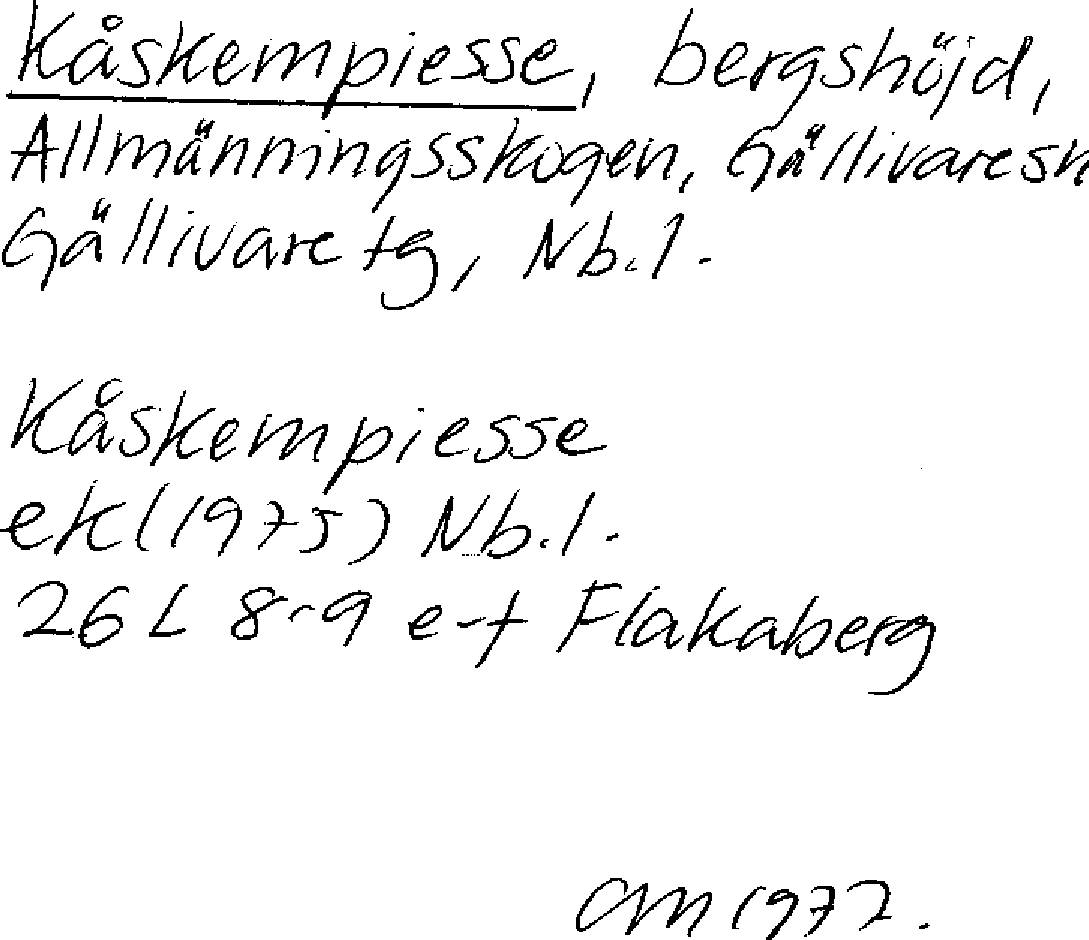 Kåskempiesse, bergshöjd,
Allmänningsskogen, Gällivare sn
Gällivare tg, Nb.l.
Kåskempiesse
ek (1975) Nb.l.
26 L 8-9 e-f Flakaberg
CM 1977.